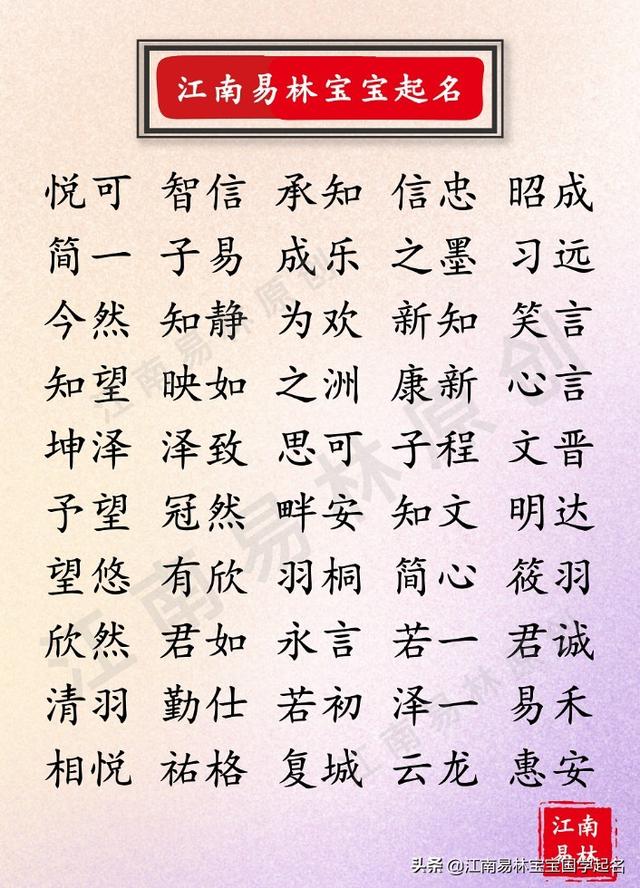 江南易林宝宝起名
悦可 智信 承知 信忠 昭成
简一 子易 成乐 之墨 习远
今然 知静 为欢 新知 笑言
知望 映如 之洲 康新 心言
坤泽 泽致 思可 子程 文晋
予望 冠然 畔安 知文 明达
望悠 有欣 羽桐 简心 筱羽
欣然 君如 永言 若一 君诚
清羽 勤仕 若初 泽一 易禾
相悦 祐格 复城 云龙 惠安
江南易林原创
江南易林原创
江南易林原创
江南
易林
头条 @江南易林宝宝国学起名